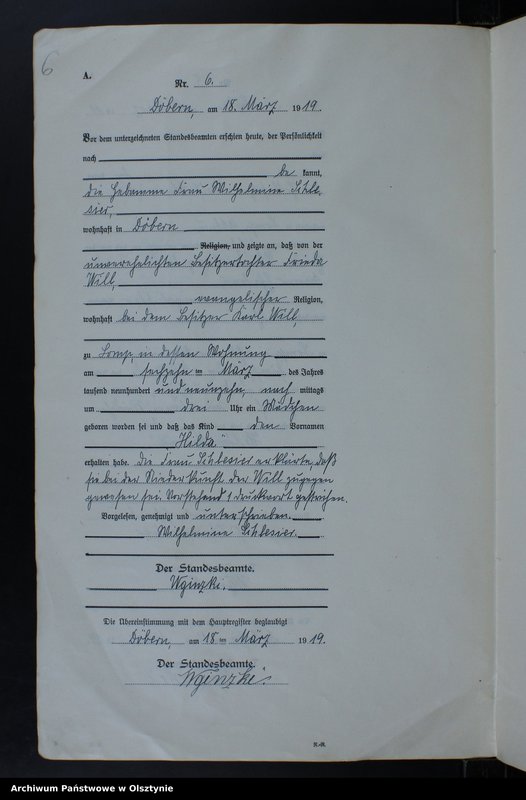 6
A.
Nr. 6.
Döbern, am 18. März 1919.
Vor dem unterzeichneten Standesbeamten erschien heute, der Persönlichkeit
nach
be kannt,
die Hebamme Frau Wilhelmine Schle-
sier,
wohnhaft in Döbern
Religion, und zeigte an, daß von der
unverehelichten Besitzertochter Frieda
Will,
evangelischer Religion,
wohnhaft bei dem Besitzer Karl Will,
zu Lomp, in dessen Wohnung
am sechzehn ten März des Jahres
tausend neunhundert und neunzehn, nach mittags
um drei Uhr ein Mädchen
geboren worden sei und daß das Kind den Vornamen
"Hilda"
erhalten habe. Die Frau Schlesier erklärte, daß
sie bei der Niederkunft der Will zugegen
gewesen sei. Vorstehend 1 Druckwort gestrichen.
Vorgelesen, genehmigt und unterschrieben.
Wilhelmine Schlesier.
Der Standesbeamte.
Die Übereinstimmung mit dem Hauptregister beglaubigt
Döbern, am 18 ten März 1919.
Der Standesbeamte.
Archiwum Państwowe w Olsztynie